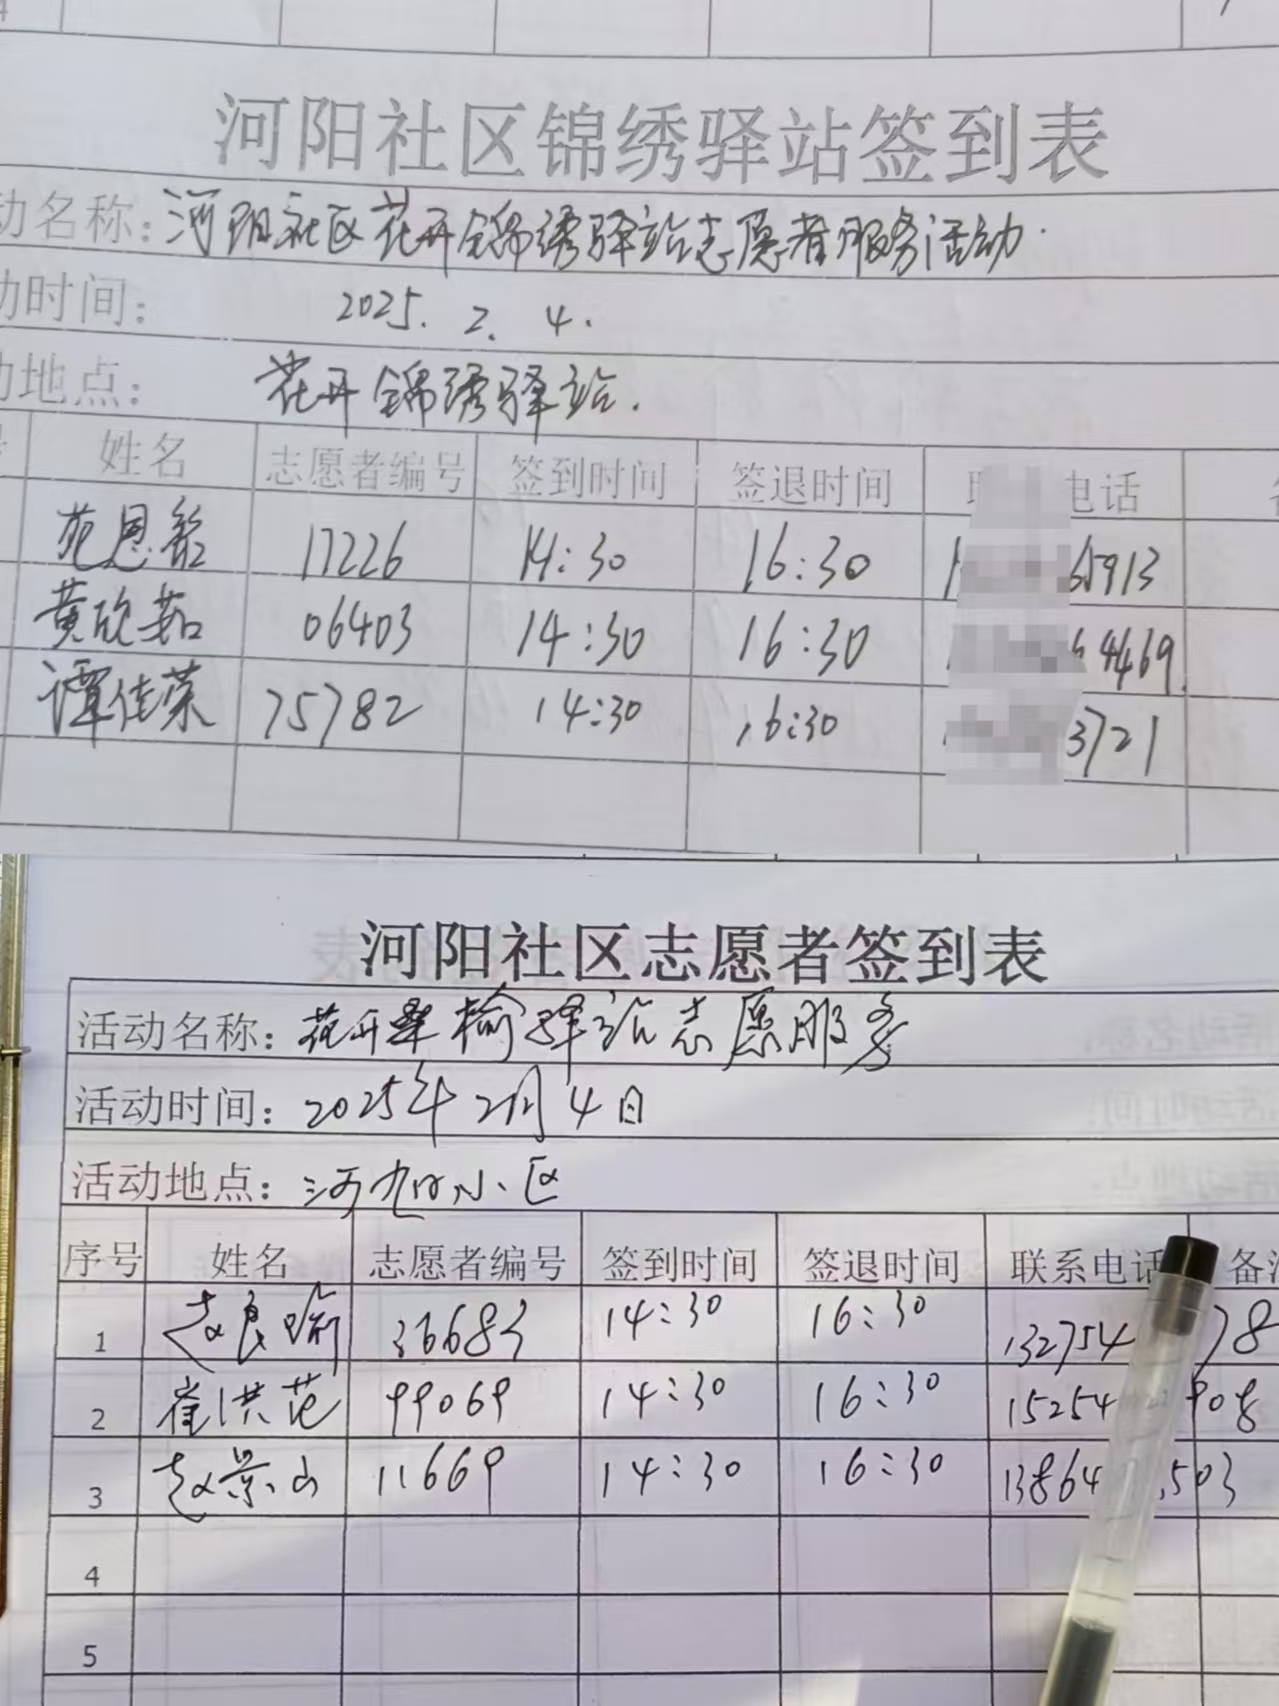 河阳社区锦绣驿站签到表
动名称：河阳社区花开锦绣驿站志愿者服务活动.
动时间： 2025. 2. 4.
地点： 花开锦绣驿站.
姓名 志愿者编号 签到时间 签退时间 电话
苑恩 17226 14:30 16:30 65913
黄欣茹 06403 14:30 16:30 4469
谭佳荣 75782 14:30 16:30 3721
河阳社区志愿者签到表
活动名称：花开桑榆驿站志愿服务
活动时间：2025年2月4日
活动地点：河阳小区
序号 姓名 志愿者编号 签到时间 签退时间 联系电话 备注
1 赵良瑜 36683 14:30 16:30 132754 78
2 崔洪范 99069 14:30 16:30 15254 908
3 赵景山 11669 14:30 16:30 13864 503
4
5